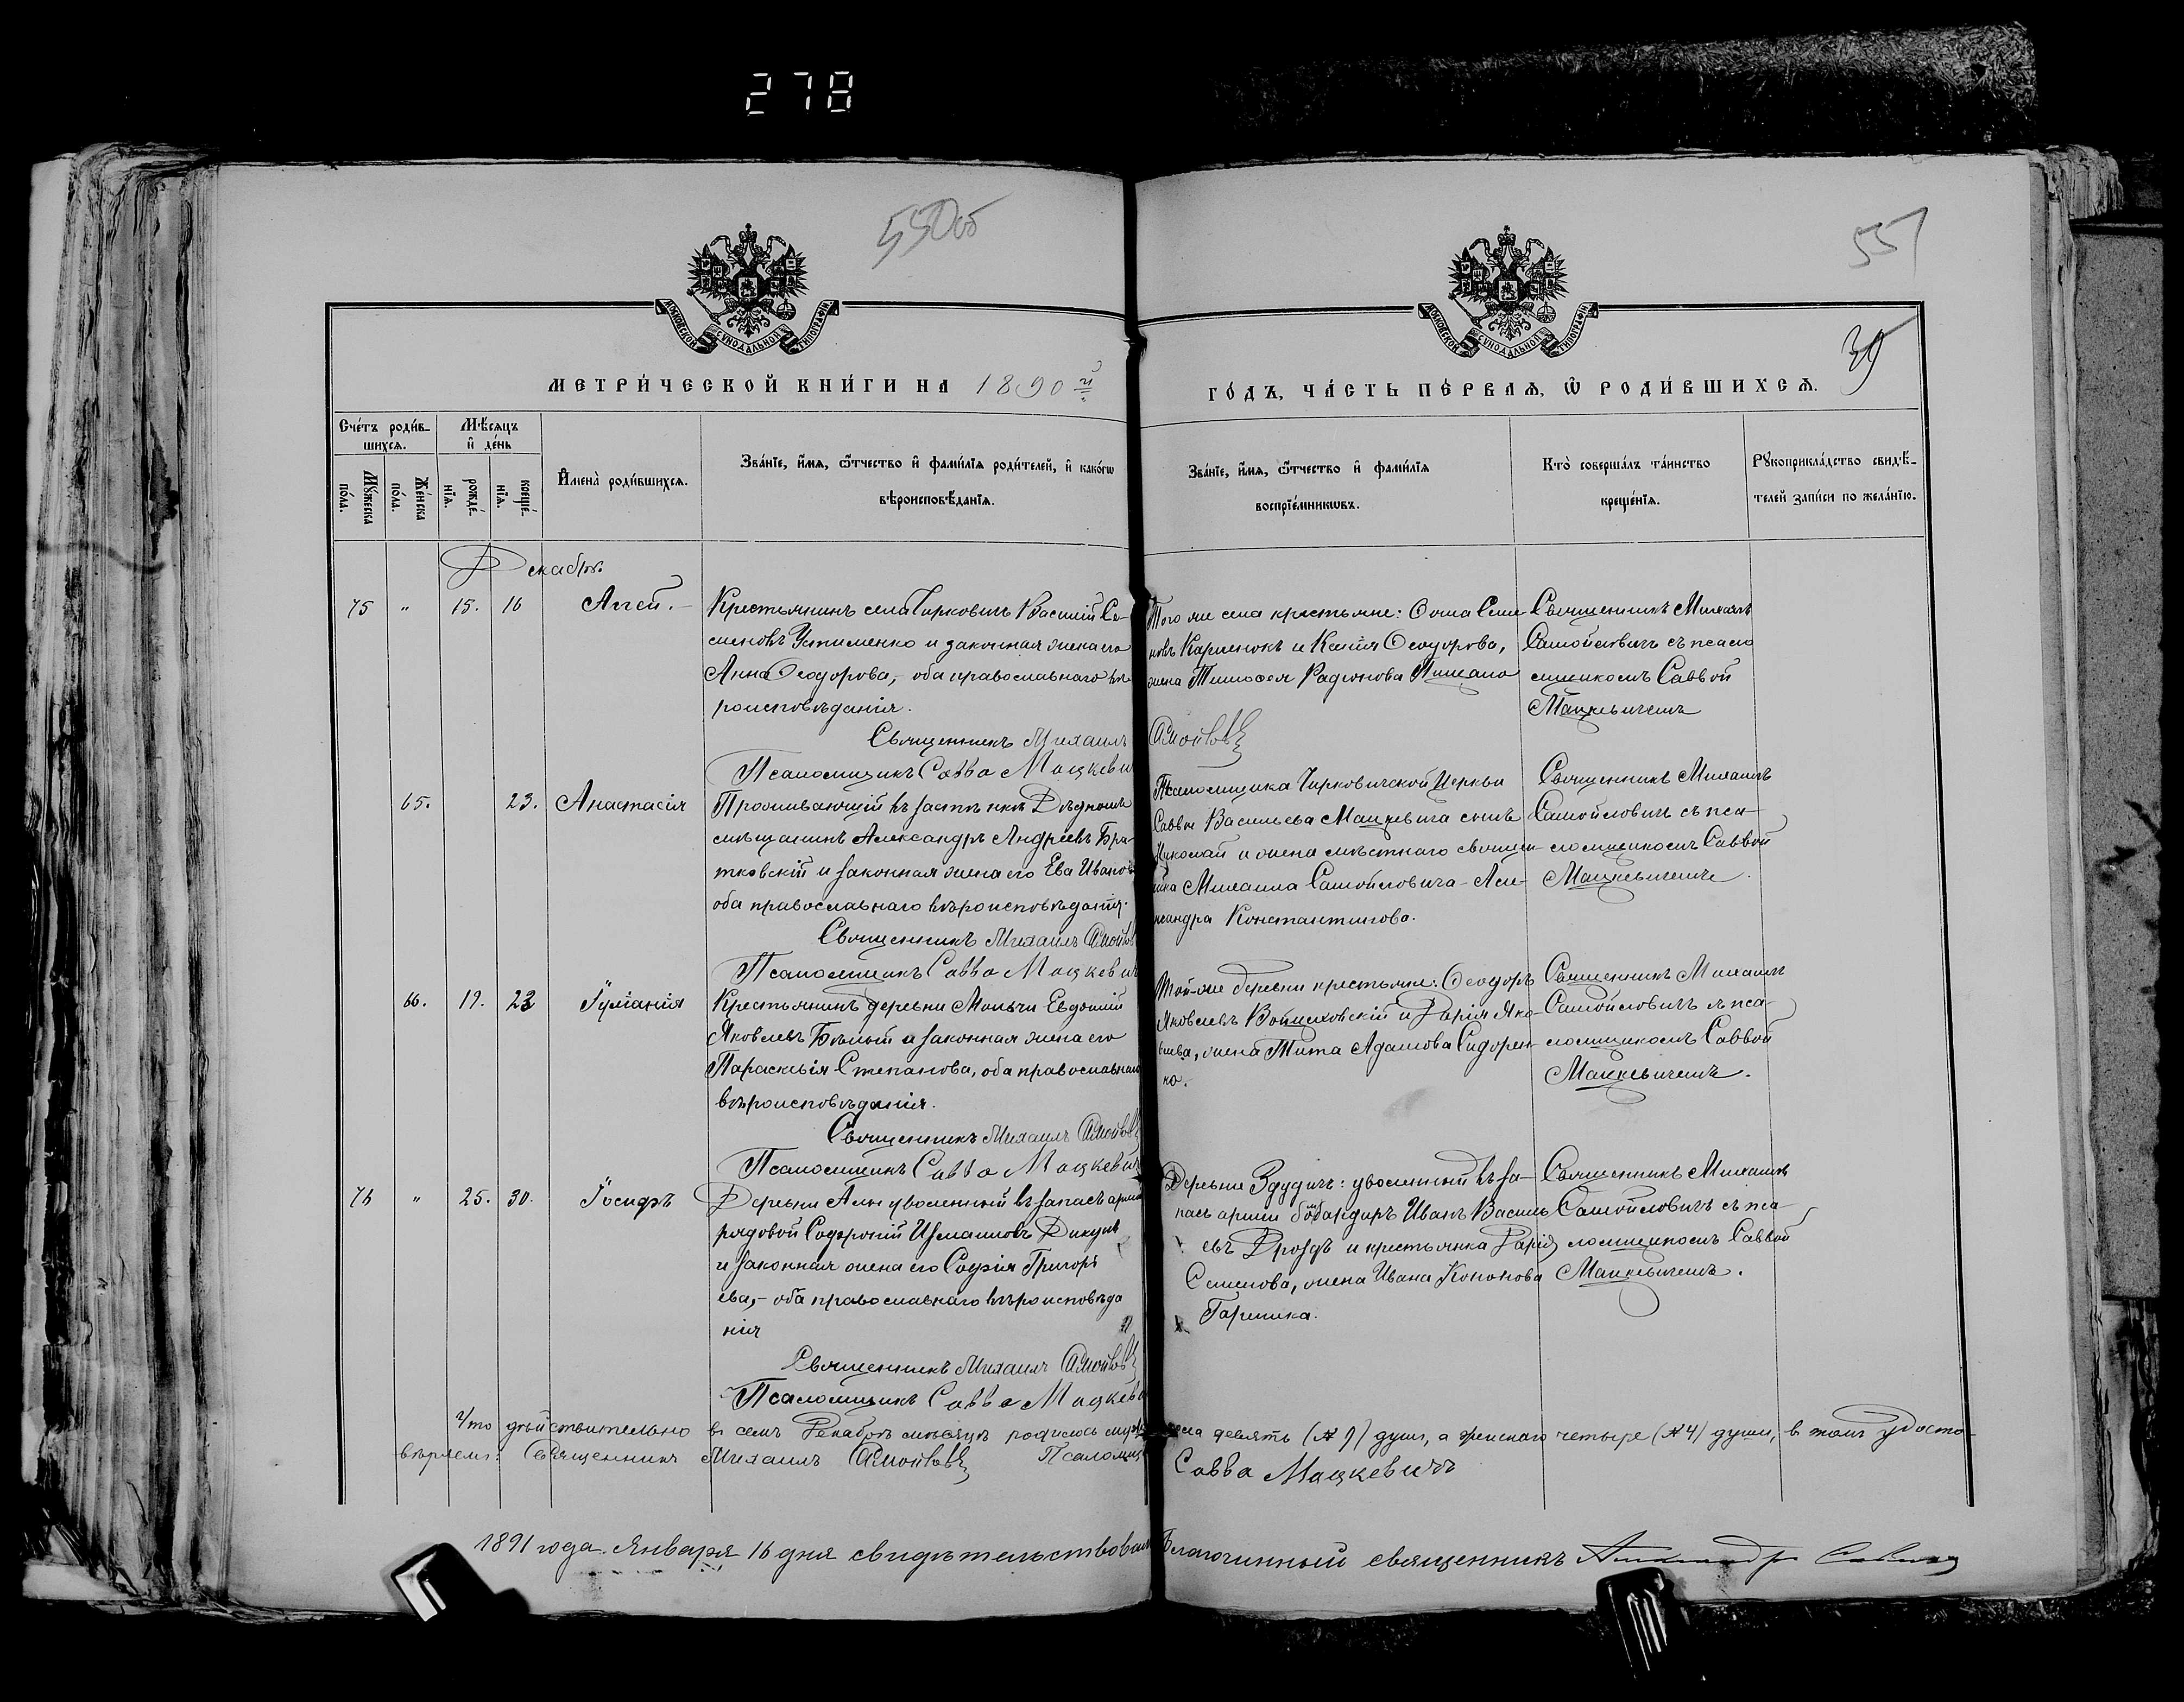 278
550об
551
39
МОСКОВСКОЙ СѴНОДАЛЬНОЙ ТИПОГРАФІИ
МОСКОВСКОЙ СѴНОДАЛЬНОЙ ТИПОГРАФІИ
МЕТРИ́ЧЕСКОЙ КНИ́ГИ НА 1890 й
ГО́ДЪ, ЧА́СТЬ ПЕ́РВАѦ, Ѽ РОДИ́ВШИХСѦ.
Сче́тъ роди́в-
шихсѧ.
Мѣ́сѧцъ
и҆ де́нь
Мꙋ́жеска
по́ла.
Же́нска
по́ла.
рожде́-
нїѧ.
креще́-
нїѧ.
И҆мена̀ роди́вшихсѧ.
Зва́нїе, и҆́мѧ, ѻ҆́тчество и҆ фами́лїѧ роди́телей, и҆ како́гѡ
вѣроисповѣ́данїѧ.
Зва́нїе, и҆́мѧ, ѻ҆́тчество и҆ фами́лїѧ
воспрїе́мникѡвъ.
Кто̀ соверша́лъ та́инство
креще́нїѧ.
Рꙋкоприкла́дство свидѣ́-
телей за́писи по жела́нїю.
Декабрь
75 " 15. 16 Аггей.
Крестьянинъ села Чирковичъ Василій Се-
меновъ Устименко и законная жена его
Анна Ѳеодорова, оба православнаго вѣ-
роисповѣданія.
Священникъ Михаилъ
Псаломщикъ Савва Мацкевич
Того же села крестьяне: Ѳома Семе-
новъ Карпенокъ и Ксенія Ѳеодорова,
жена Тимоѳея Радіонова
Священникъ Михаилъ
Самойловичъ съ псало
мщикомъ Саввой
Мацкевичемъ
65. 23. Анастасія
Проживающій въ застѣнкѣ
мѣщанинъ Александръ Андреевъ Бра-
тковскій и законная жена его Ева Иванов
оба православнаго вѣроисповѣданія.
Священникъ Михаилъ Самойлов
Псаломщикъ Савва Мацкевич
Псаломщика Чирковичской Церкви
Саввы Васильева Мацкевича сынъ
Николай и жена мѣстнаго священ-
ника Михаила Самойловича - Але-
ксандра Константинова.
Священникъ Михаилъ
Самойловичъ съ пса-
ломщикомъ Саввой
Мацкевичемъ.
66. 19. 23 Іуліанія
Крестьянинъ деревни Мольчи Евдокій
Яковлевъ Бѣлый и законная жена его
Параскевія Степанова, оба православнаго
вѣроисповѣданія.
Священникъ Михаилъ Самойлов
Псаломщикъ Савва Мацкевич
Той-же деревни крестьяне: Ѳеодоръ
Яковлевъ Войцеховскій и Дарія Яко-
влева, жена Тита Адамова Сидорен-
ко.
Священникъ Михаилъ
Самойловичъ съ пса-
ломщикомъ Саввой
Мацкевичемъ.
76 " 25. 30. Іосифъ
Деревни Алы уволенный въ запасъ арміи
рядовой Софроній Измаиловъ Дикунъ
и законная жена его Софія Григорь
ева, - оба православнаго вѣроисповѣда
нія
Священникъ Михаилъ Самойлов
Псаломщикъ Савва Мацкевич
Деревни Здудичъ: уволенный въ за-
пасъ арміи бомбандиръ Иванъ Василь
евъ Дроздъ и крестьянка Дарія
Семенова, жена Ивана Кононова
Гаршика.
Священникъ Михаилъ
Самойловичъ съ пса-
ломщикомъ Саввой
Мацкевичемъ.
Что дѣйствительно въ семъ Декабрѣ мѣсяцѣ родилось мужеска девять (№ 9) душъ, а женскаго четыре (№ 4) души, въ томъ удосто-
вѣряемъ: Священникъ Михаилъ Самойлов Псаломщ Савва Мацкевичъ
1891 года Января 16 дня свидѣтельствовалъ Благочинный священникъ